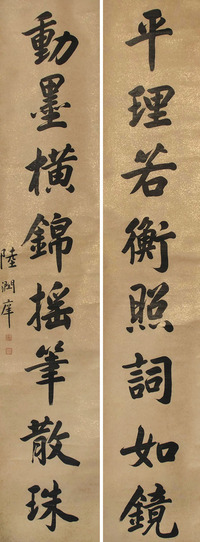 平理若衡照詞如鏡
動墨橫錦揺筆散珠
陸潤庠